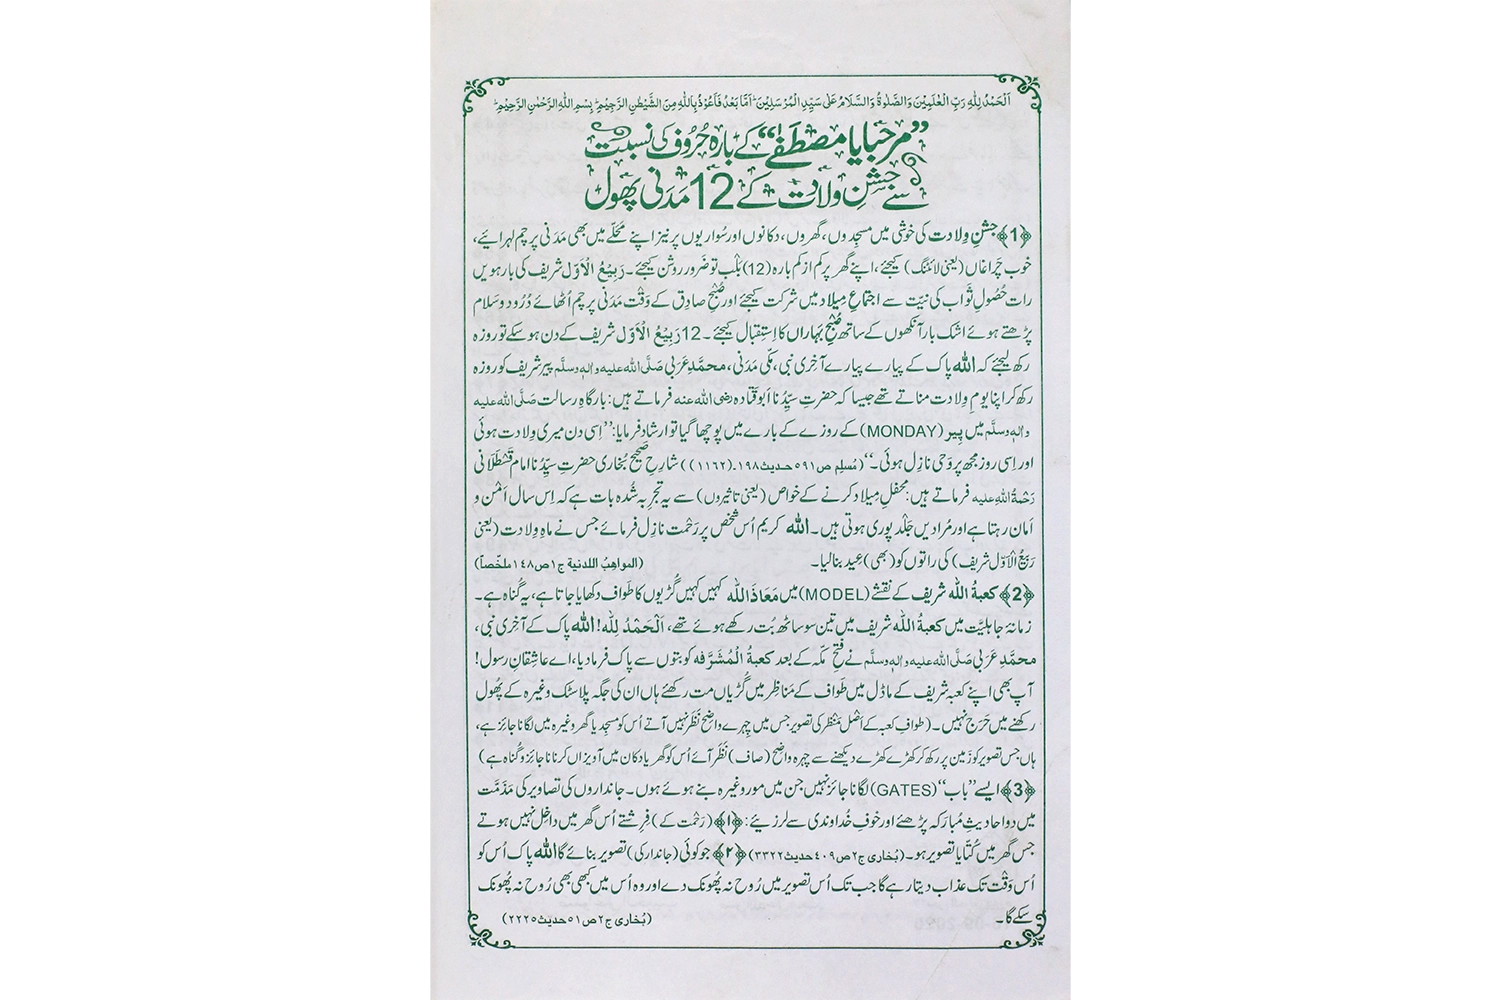 اَلْحَمْدُ لِلّٰہِ رَبِّ الْعٰلَمِیْنَ وَالصَّلٰوۃُ وَالسَّلَامُ عَلٰی سَیِّدِ الْمُرْسَلِیْنَ ؕ اَمَّا بَعْدُ فَاَعُوْذُ بِاللّٰہِ مِنَ الشَّیْطٰنِ الرَّجِیْمِ ؕ بِسْمِ اللّٰہِ الرَّحْمٰنِ الرَّحِیْمِ ؕ
”مرحبا یا مصطفٰے“ کے بارہ حُرُوف کی نسبت
سے جشنِ ولادت کے 12 مَدَنی پھول
﴿1﴾ جشنِ وِلادت کی خوشی میں مسجدوں، گھروں، دکانوں اور سُواریوں پر نیز اپنے مَحَلّے میں بھی مَدَنی پرچم لہرائیے،
خوب چَراغاں (یعنی لائٹنگ) کیجئے، اپنے گھر پر کم از کم بارہ (12) بَلْب تو ضَرور روشن کیجئے۔ رَبِیْعُ الْاَوَّل شریف کی بارہویں
رات حُصُولِ ثواب کی نیّت سے اجتماعِ میلاد میں شرکت کیجئے اور صُبْحِ صادِق کے وَقْت مَدَنی پرچم اُٹھائے دُرُود وسَلام
پڑھتے ہوئے اشک بار آنکھوں کے ساتھ صُبْحِ بہاراں کا اِستِقبال کیجئے۔ 12 رَبِیْعُ الْاَوَّل شریف کے دن ہو سکے تو روزہ
رکھ لیجئے کہ اللہ پاک کے پیارے پیارے آخری نبی، مکّی مَدَنی، محمَّدِ عَرَبی صَلَّی اللہ علیہ واٰلہٖ وسلَّم پیر شریف کو روزہ
رکھ کر اپنا یومِ وِلادت مناتے تھے جیسا کہ حضرتِ سیِّدُنا ابو قَتادہ رضی اللہ عنہ فرماتے ہیں: بارگاہِ رسالت صَلَّی اللہ علیہ
واٰلہٖ وسلَّم میں پِیر (MONDAY) کے روزے کے بارے میں پوچھا گیا تو ارشاد فرمایا: ”اِسی دن میری وِلادت ہوئی
اور اِسی روز مجھ پر وَحی نازِل ہوئی۔“ (مُسلِم ص ۵۹۱ حدیث ۱۹۸۔(۱۱۶۲)) شارِحِ صَحِیح بُخاری حضرتِ سیِّدُنا امام قَسْطَلانی
رَحْمۃُ اللہِ علیہ فرماتے ہیں: محفلِ مِیلاد کرنے کے خواص (یعنی تاثیروں) سے یہ تجرِبہ شُدہ بات ہے کہ اِس سال اَمْن و
اَمان رہتا ہے اور مُرادیں جَلْد پوری ہوتی ہیں۔ اللہ کریم اُس شخص پر رَحْمت نازِل فرمائے جس نے ماہِ وِلادت (یعنی
رَبِیْعُ الْاَوَّل شریف) کی راتوں کو (بھی) عید بنا لیا۔ (المواھِبُ اللدنیۃ ج۱ ص۱۴۸ ملخّصاً)
﴿2﴾ کعبۃُ اللہ شریف کے نقشے (MODEL) میں مَعَاذَ اللہ کہیں کہیں گُڑیوں کا طواف دکھایا جاتا ہے، یہ گُناہ ہے۔
زمانۂ جاہلیَّت میں کعبۃُ اللہ شریف میں تین سو ساٹھ بُت رکھے ہوئے تھے، اَلْحَمْدُ لِلّٰہ! اللہ پاک کے آخِری نبی،
محمَّدِ عَرَبی صَلَّی اللہ علیہ واٰلہٖ وسلَّم نے فتحِ مکّہ کے بعد کعبۃُ الْمُشَرَّفہ کو بتوں سے پاک فرما دیا، اے عاشِقانِ رسول!
آپ بھی اپنے کعبہ شریف کے ماڈل میں طواف کے مَناظِر میں گُڑیاں مت رکھئے ہاں ان کی جگہ پلاسٹک وغیرہ کے پُھول
رکھنے میں حَرَج نہیں۔ (طوافِ کعبہ کے اَصْل مَنْظَر کی تصویر جس میں چہرے واضِح نَظَر نہیں آتے اُس کو مسجِد یا گھر وغیرہ میں لگانا جائز ہے،
ہاں جس تصویر کو زَمین پر رکھ کر کھڑے کھڑے دیکھنے سے چہرہ واضِح (صاف) نَظَر آئے اُس کو گھر یا دکان میں آویزاں کرنا ناجائز و گُناہ ہے)
﴿3﴾ ایسے ”باب“ (GATES) لگانا جائز نہیں جن میں مور وغیرہ بنے ہوئے ہوں۔ جانداروں کی تصاویر کی مَذَمَّت
میں دو احادیثِ مُبارَکہ پڑھئے اور خوفِ خُداوندی سے لرزیئے: ﴿۱﴾ (رَحْمت کے) فِرِشتے اُس گھر میں داخِل نہیں ہوتے
جس گھر میں کُتّا یا تصویر ہو۔ (بُخاری ج۲ ص۴۰۹ حدیث۳۳۲۲) ﴿۲﴾ جو کوئی (جاندار کی) تصویر بنائے گا اللہ پاک اُس کو
اُس وَقْت تک عذاب دیتا رہے گا جب تک اُس تصویر میں رُوح نہ پُھونک دے اور وہ اُس میں کبھی بھی رُوح نہ پُھونک
سکے گا۔ (بُخاری ج۲ ص۵۱ حدیث۲۲۲۵)